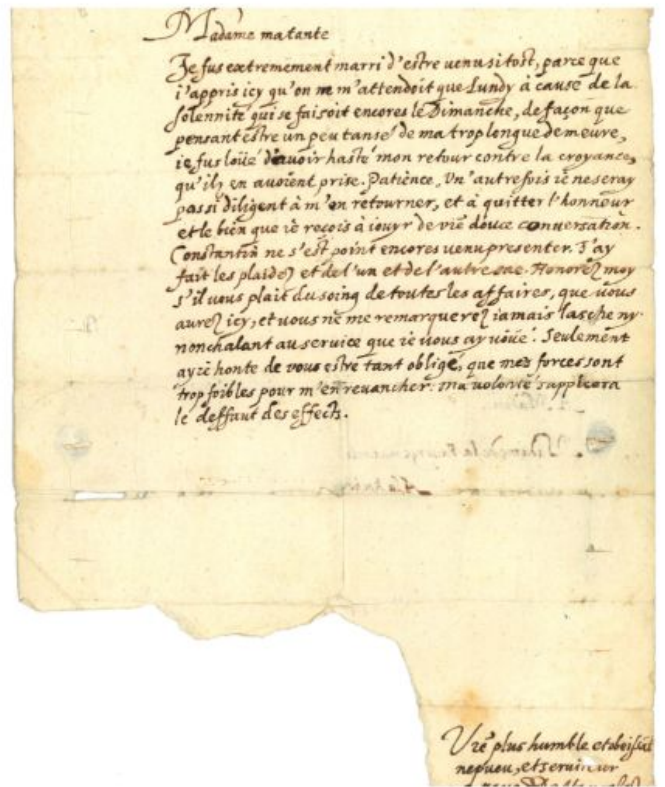 Madame ma tante
Je fus extremement marri d'estre venu si tost, parce que
i'appris icy qu'on ne m'attendoit que Lundy à cause de la
solennité qui se faisoit encores le Dimanche, de façon que
pensant estre un peu tansé de ma trop longue demeure,
ie fus loüé d'avoir hasté mon retour contre la croyance,
qu'ilz en avoient prise. Patience, Un' autrefois ie ne seray
pas si diligent à m'en retourner, et à quitter l'honneur
et le bien que ie reçois à iouyr de vre douce conversation.
Constantin ne s'est point encores venu presenter. J'ay
fait les plaidez et de l'un et de l'autre sac. Honorez moy
s'il vous plait du soing de toutes les affaires, que vous
aurez icy, et vous ne me remarquerez iamais lasche ny
nonchalant au service que ie vous ay voüé. Seulement
ay ie honte de vous estre tant obligé, que mes forces sont
trop foibles pour m'en revancher. ma volonté suppleera
le deffaut des effects.
Vre plus humble et obeissant
nepveu, et serviteur